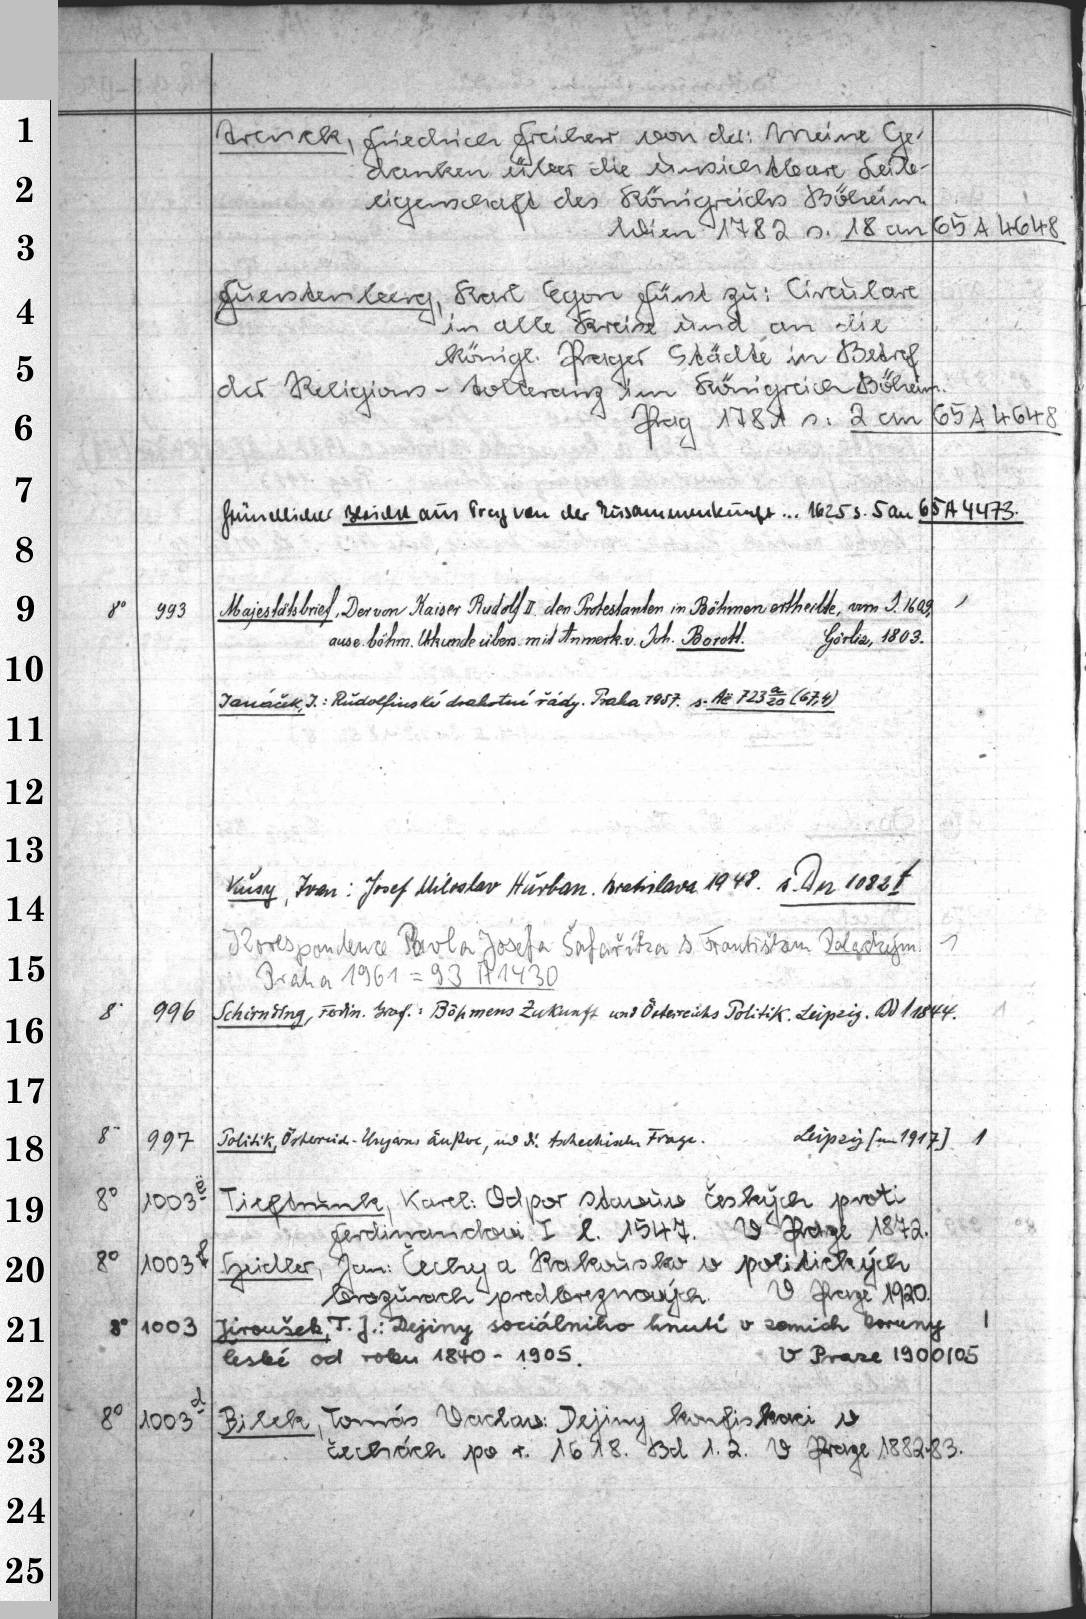 1
2
3
4
5
6
7
8
9
10
11
12
13
14
15
16
17
18
19
20
21
22
23
24
25
Trenck, Friedrich Freiherr von der: Meine Ge-
danken über die unsichtbare Leib-
eigenschaft des Königreichs Böheim
Wien 1782 s. 18 an 65 A 4648
Fuerstenberg, Karl Egon Fürst zu: Circulare
in alle Kreise und an die
Königl. Prager Städte in Betref
der Religions-tolleranz im Königreich Böheim.
Prag 1781 s: 2 an 65 A 4648
Gründlicher Bericht aus Prag von der Zusammenkunft... 1625 s. 5 an 65 A 4473.
8° 993 Majestätsbrief, Der von Kaiser Rudolf II. den Protestanten in Böhmen ertheilte, vom J. 1609, 1
aus e. böhm. Urkunde übers. mit Anmerk. v. Joh. Borott. Görlitz, 1803.
Janáček, J.: Rudolfinské drahotní řády. Praha 1957. s. Ač 723 a/20 (67,4)
Kusy, Ivan: Josef Miloslav Hurban. Bratislava 1948. s. Dn 1082 f
Korespondence Pavla Josefa Šafaříka s Františkem Palackým. 1
Praha 1961 = 93 A 1430
8° 996 Schirnding, Ferdin. Graf.: Böhmens Zukunft und Österreichs Politik. Leipzig. Bd 1 1844. 1
8° 997 Politik, Österreich-Ungarns äußre, und d. tschechische Frage. Leipzig [um 1917] 1
8° 1003 e Tieftrunk, Karel: Odpor stavův českých proti
Ferdinandovi I l. 1547. V Praze 1872.
8° 1003 f Heidler, Jan: Čechy a Rakousko v politických
brožurách predbreznových. V Praze 1920.
8° 1003 Jiroušek, T. J.: Dejiny sociálniho hnutí v zemich koruny 1
české od roku 1840-1905. V Praze 1900/05
8° 1003 d Bilek, Tomás Vaclav: Dejiny konfiskaci v
čechách po r. 1618. Bd 1. 2. V Praze 1882-83.